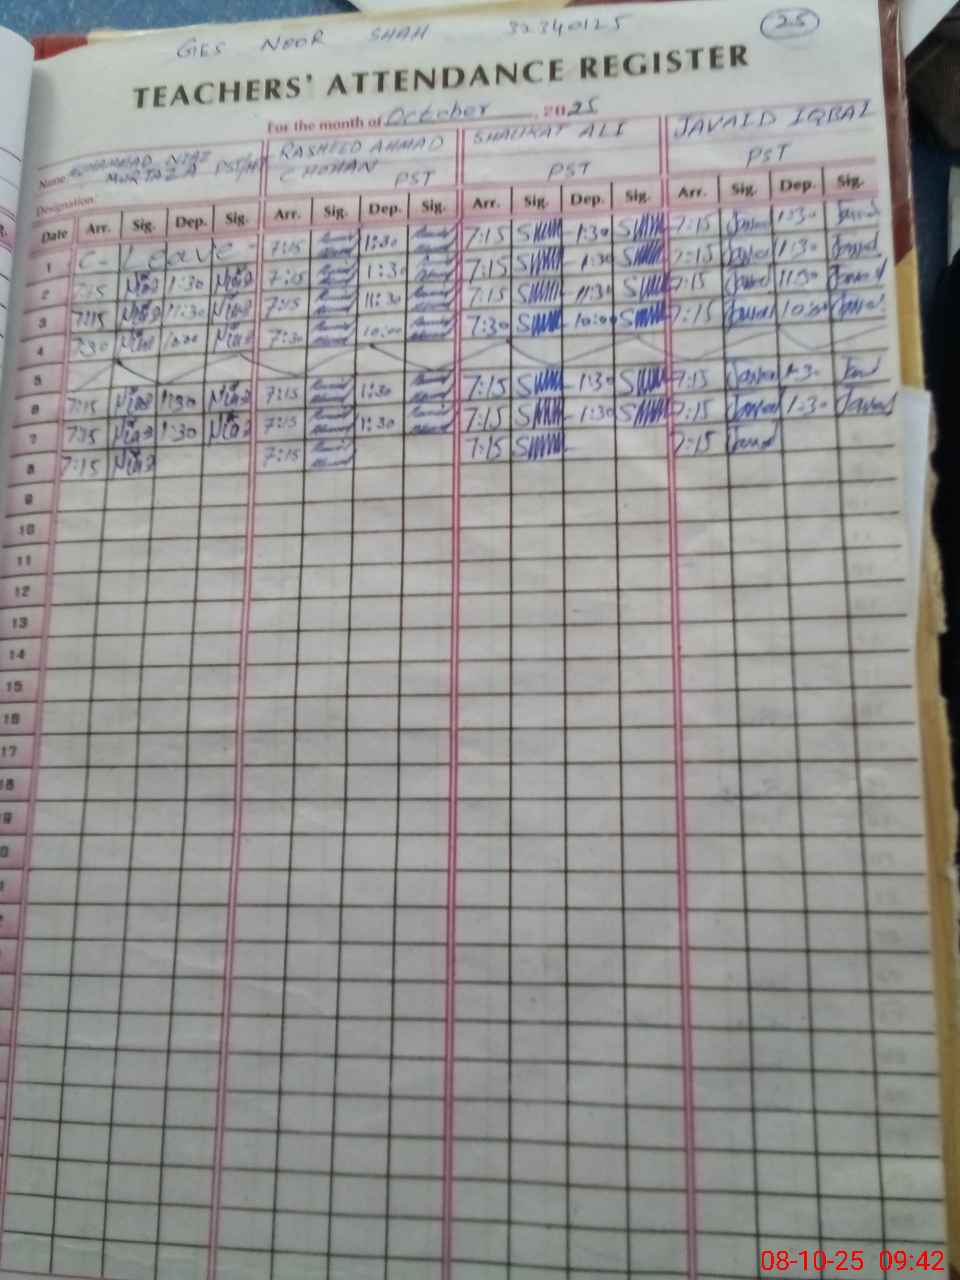 GES NOOR SHAH 32340125 25
TEACHERS' ATTENDANCE REGISTER
For the month of October, 2025
Name MUHAMMAD NIAZ RASHEED AHMAD SHAUKAT ALI JAVAID IQBAL
MURTAZA PST/HT CHOHAN PST PST PST
Designation:
Date Arr. Sig. Dep. Sig. Arr. Sig. Dep. Sig. Arr. Sig. Dep. Sig. Arr. Sig. Dep. Sig.
1 C- Leave - 7:15 1:30 7:15 1:30 7:15 1:30
2 7:15 Niaz 1:30 Niaz 7:15 1:30 7:15 1:30 7:15 Javed 1:30 Javed
3 7:15 Niaz 11:30 Niaz 7:15 11:30 7:15 11:30 7:15 Javed 11:30 Javed
4 7:30 Niaz 10:00 Niaz 7:30 10:00 7:30 10:00 7:15 Javed 10:00
5
6 7:15 Niaz 1:30 Niaz 7:15 1:30 7:15 1:30 7:15 Javed 1:30
7 7:15 Niaz 1:30 Niaz 7:15 1:30 7:15 1:30 7:15 Javed 1:30 Javed
8 7:15 Niaz 7:15 7:15 7:15 Javed
9
10
11
12
13
14
15
16
17
18
08-10-25 09:42